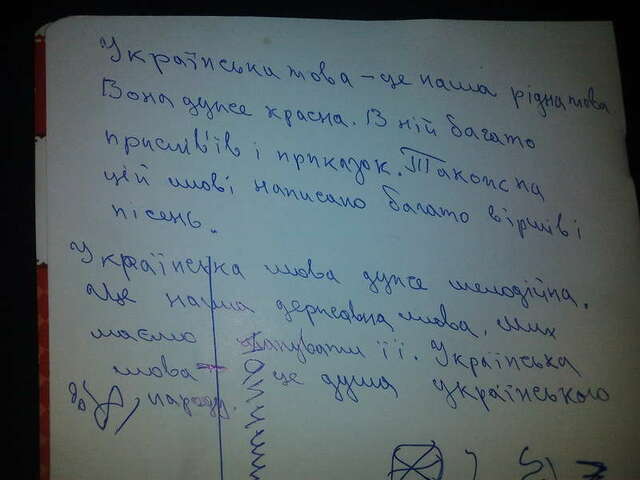 Українська мова – це наша рідна мова
Вона дуже красна. В ній багато
прислів'їв і приказок. Також на
цій мові написано багато віршів і
пісень.
Українська мова дуже мелодійна.
Це наша державна мова.
маємо шанувати її. Українська
мова – це душа українського
народу.